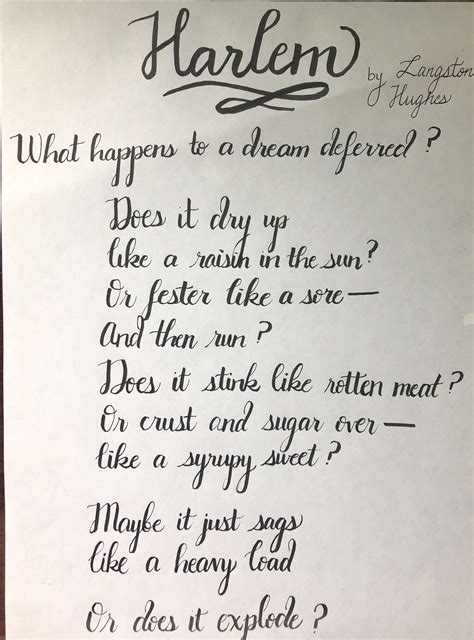 Harlem
by Langston
Hughes
What happens to a dream deferred?
Does it dry up
like a raisin in the sun?
Or fester like a sore—
And then run?
Does it stink like rotten meat?
Or crust and sugar over—
like a syrupy sweet?
Maybe it just sags
like a heavy load
Or does it explode?